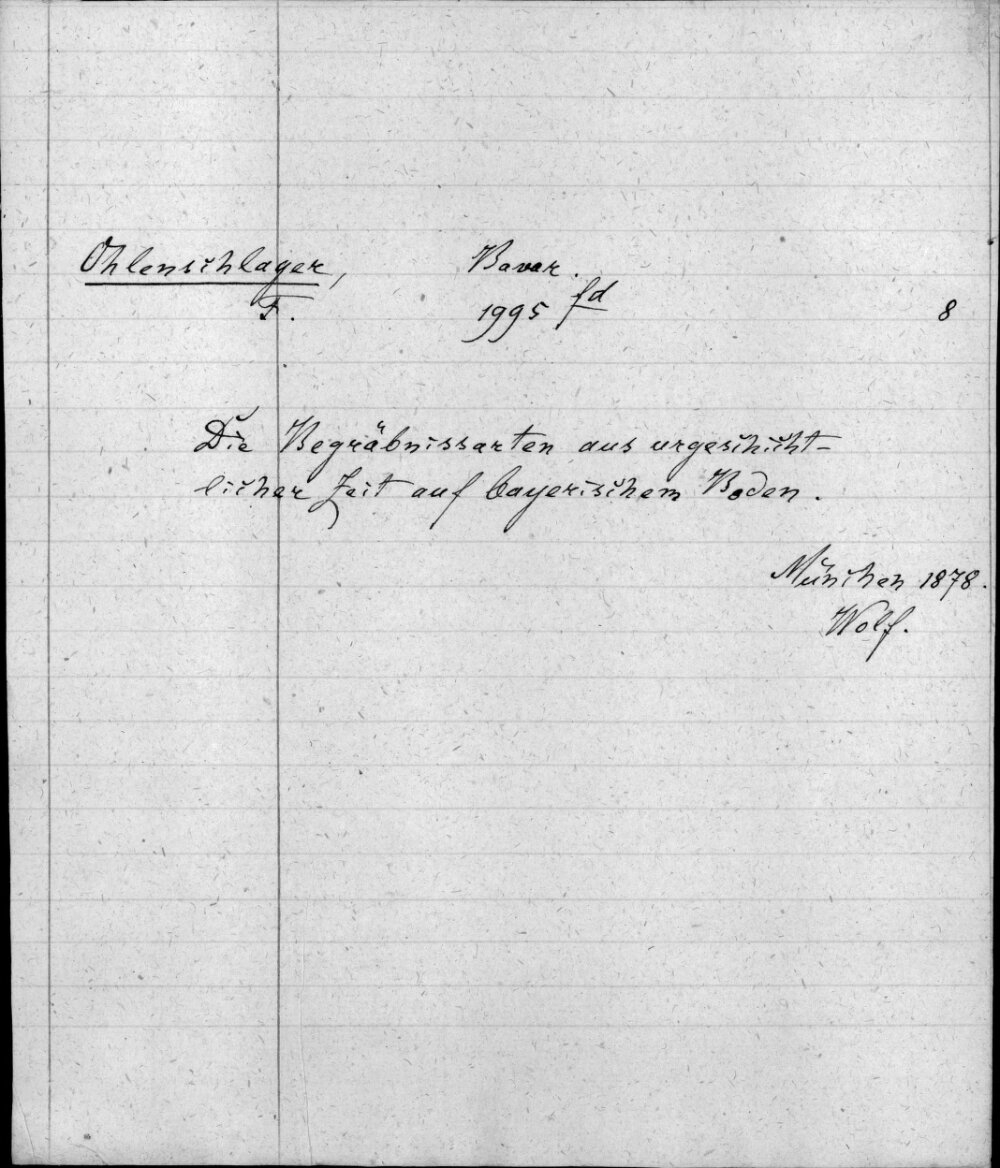 Ohlenschlager, Bavar.
F. 1995 fd 8
Die Begräbnissarten aus urgeschicht-
licher Zeit auf bayerischem Boden.
München 1878.
Wolf.